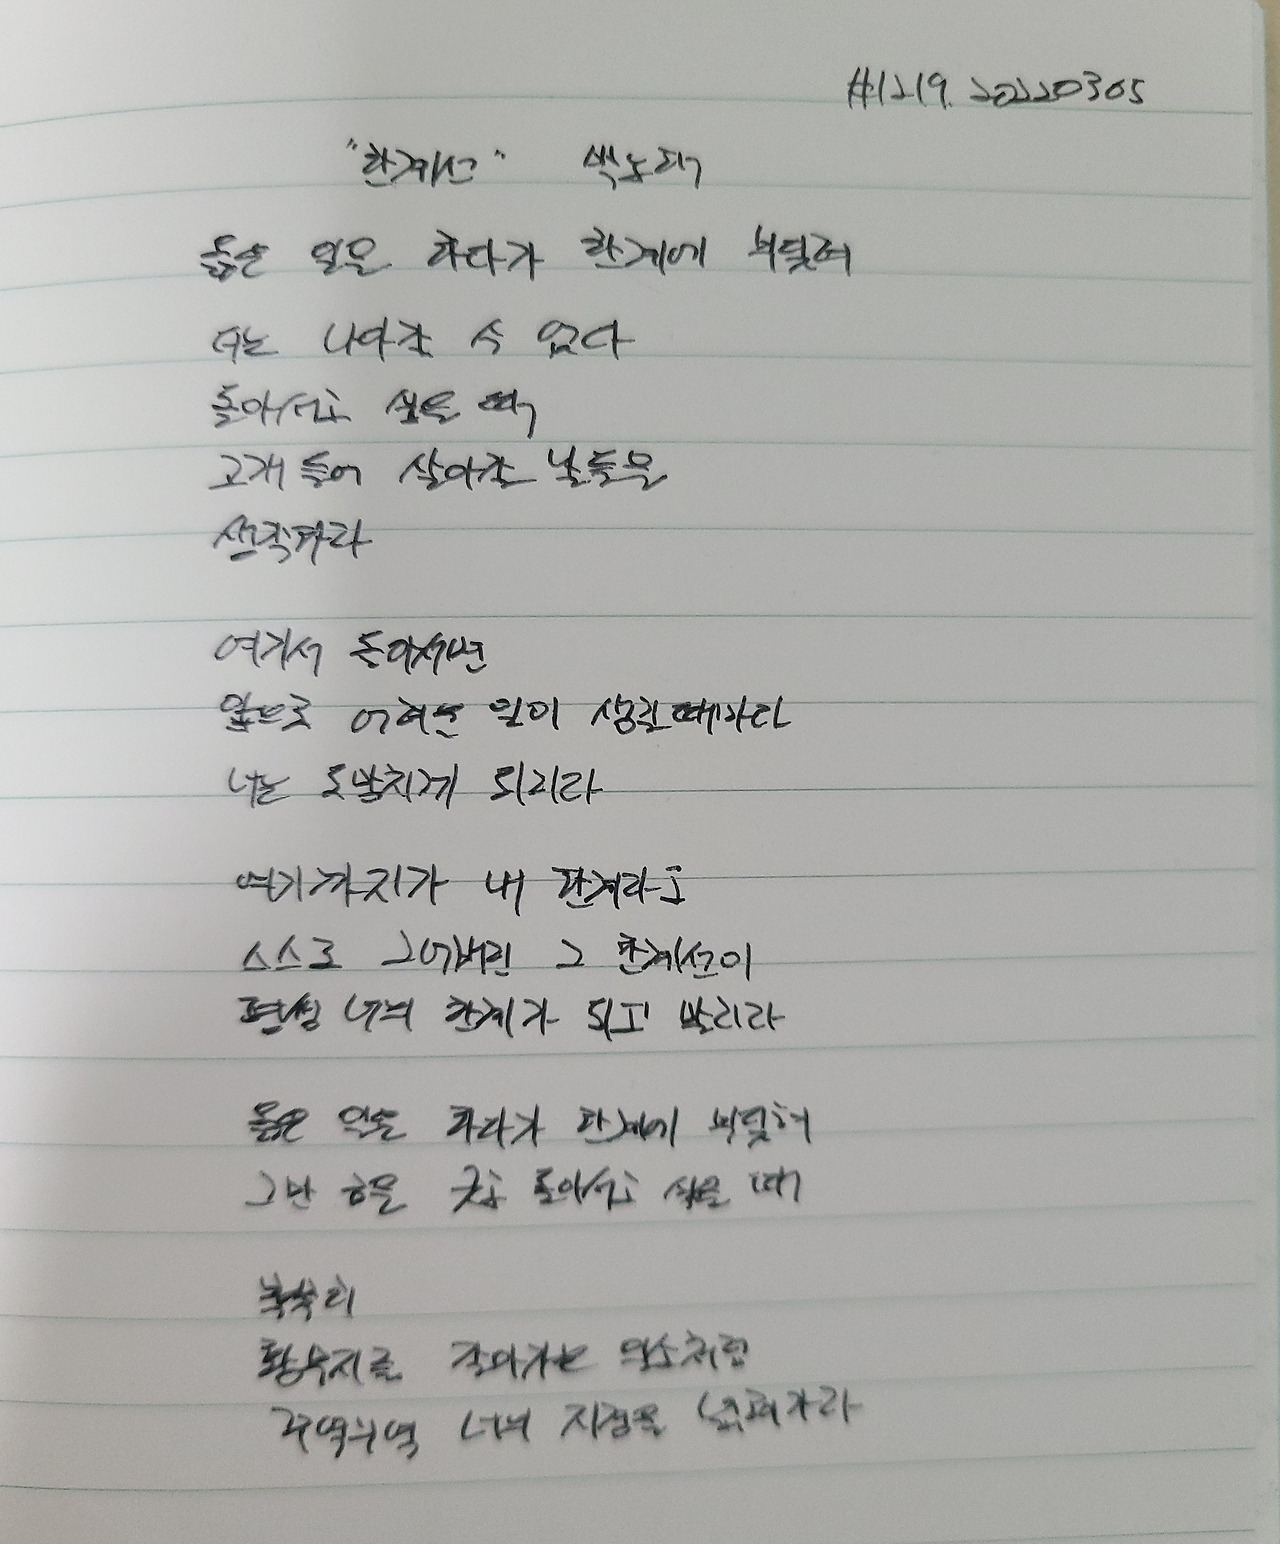 #1219. 20220305
"한계선" 박노해
옳은 일을 하다가 한계에 부딪혀
더는 나아갈 수 없다
돌아서고 싶을 때
고개 들어 살아갈 날들을
생각하라
여기서 돌아서면
앞으로 어려운 일이 생길때마다
너는 도망치게 되리라
여기까지가 내 한계라고
스스로 그어버린 그 한계선이
평생 너의 한계가 되고 말리라
옳은 일을 하다가 한계에 부딪혀
그만 금을 긋고 돌아서고 싶을 때
묵묵히
황무지를 갈아가는 일소처럼
꾸역꾸역 너의 지경을 넓혀가라